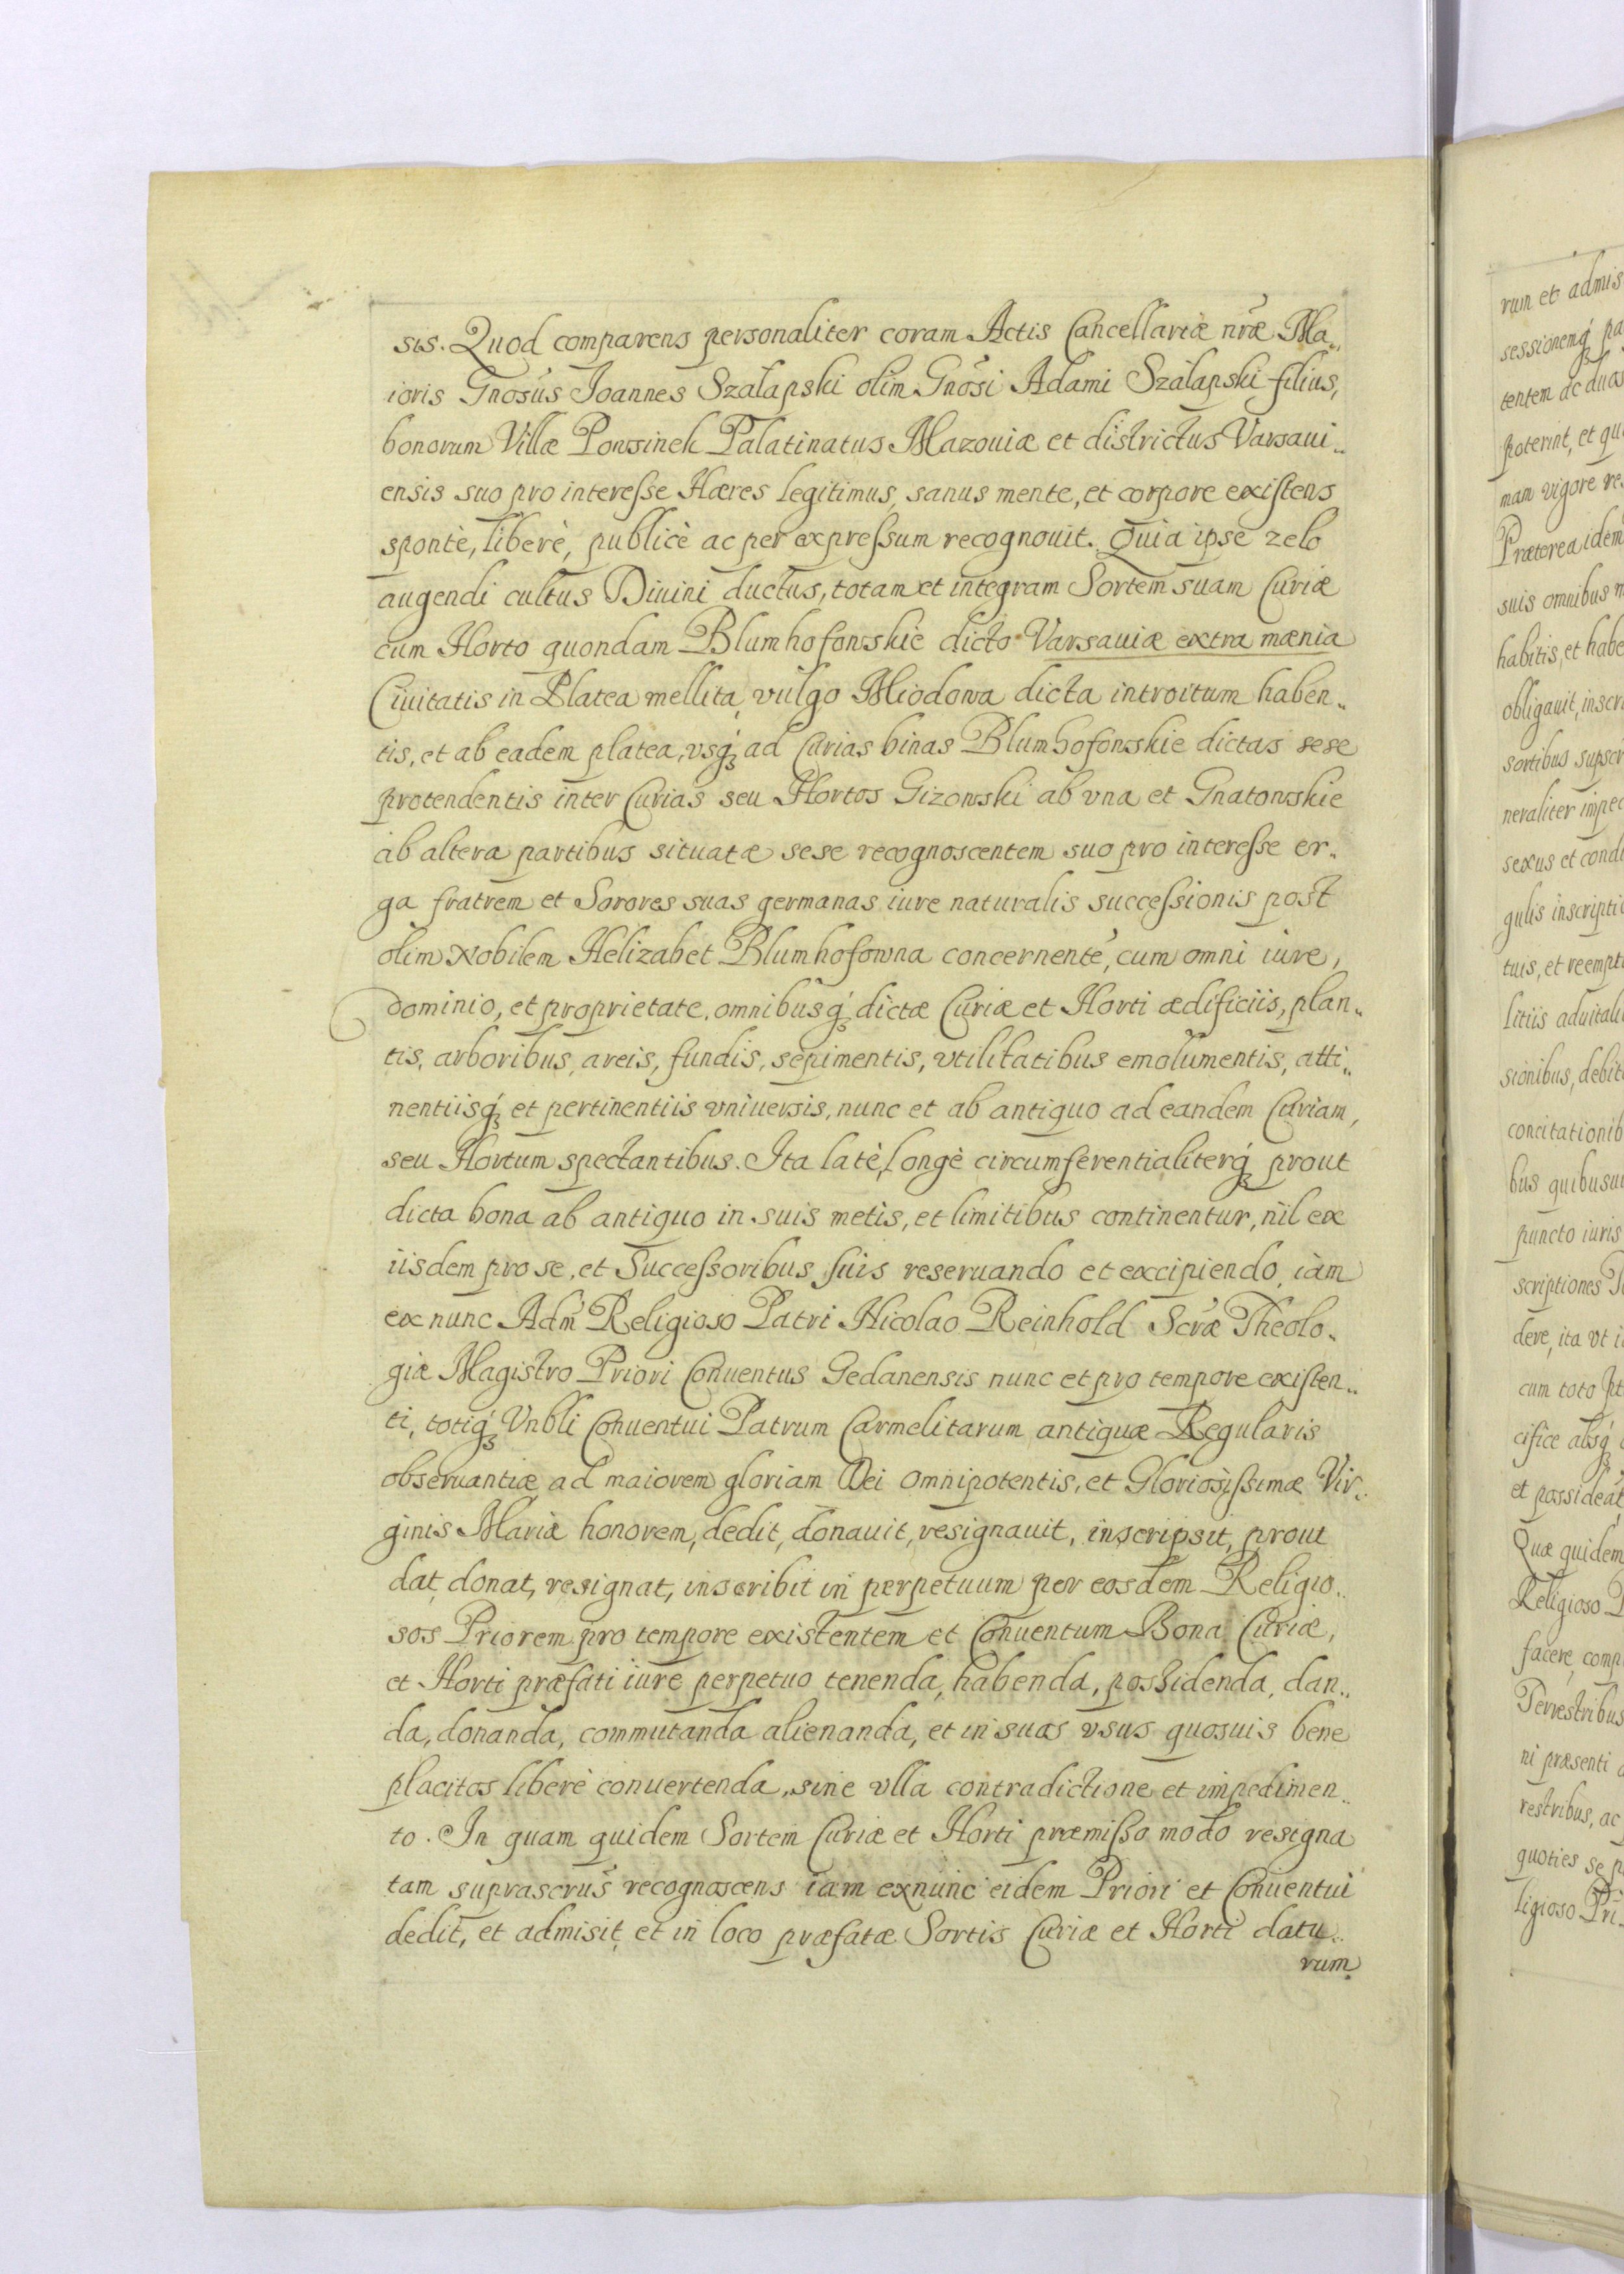 sis. Quod comparens personaliter coram Actis Cancellariæ nr̃æ Ma„
ioris Gnosũs Joannes Szałapski olim Gnõsi Adami Szałapski filius,
bonorum Villæ Powsinek Palatinatus Mazouiæ et districtus Varsaui„
ensis suo pro interesse Hæres legitimus, sanus mente, et corpore existens
spontè, liberè, publicè ac per expressum recognouit. Quia ipse zelo
augendi cultus Diuini ductus, totam et integram Sortem suam Curiæ
cum Horto quondam Blumhofowskie dicto Varsauiæ extra mænia
Ciuitatis in Platea mellita, vulgo Miodowa dicta introitum haben„
tis, et ab eadem platea, vsq́ʒ ad Curias binas Blumhofowskie dictas sese
protendentis inter Curias seu Hortos Gizowski ab vna et Gnatowskie
ab altera partibus situatæ sese recognoscentem suo pro interesse er„
ga fratrem et Sorores suas germanas iure naturalis successionis post
olim Nobilem Helizabet Blumhofowna concernentẽ, cum omni iure,
dominio, et proprietate, omnibusq́ʒ dictæ Curiæ et Horti ædificiis, plan„
tis, arboribus, areis, fundis, sepimentis, vtilitatibus emolumentis, atti„
nentiisq́ʒ et pertinentiis vniuersis, nunc et ab antiquo ad eandem Curiam,
seu Hortum spectantibus. Ita latè, longè circumferentialiterq́ʒ prout
dicta bona ab antiquo in suis metis, et limitibus continentur, nil ex
iisdem pro se, et Successoribus suis reseruando et excipiendo, iam
ex nunc Adm̃ Religioso Patri Nicolao Reinhold Scr̃æ Theolo„
giæ Magistro Priori Conuentus Gedanensis nunc et pro tempore existen„
ti, totiq́ʒ Vnbli Conuentui Patrum Carmelitarum antiquæ Regularis
obseruantiæ ad maiorem gloriam Dei omnipotentis, et Gloriosissimæ Vir„
ginis Mariæ honorem, dedit, donauit, resignauit, inscripsit, prout
dat, donat, resignat, inscribit in perpetuum per eosdem Religio„
sos Priorem pro tempore existentem et Conuentum Bona Curiæ,
et Horti præfati iure perpetuo tenenda, habenda, possidenda, dan„
da, donanda, commutanda alienanda, et in suos vsus quosuis bene
placitos liberè conuertenda, sine vlla contradictione et impedimen„
to. In quam quidem Sortem Curiæ et Horti præmisso modo resigna
tam suprascrũs recognoscens iam exnunc eidem Priori et Conuentui
dedit, et admisit, et in loco præfatæ Sortis Curiæ et Horti datu„
rum
rum et admis
sessionemq́ʒ pa
tentem ac duos
poterint, et qu
mam vigore re
Præterea idem
suis omnibus
habitis, et habe
obligauit, inscri
sortibus supscr
neraliter impe
sexus et condi
gulis inscripti
tuis, et reempt
litiis aduitali
sionibus, debit
concitationib
bus quibusui
puncto iuris
scriptiones
dere, ita vt i
cum toto
cifice absq́ʒ
et possideat
Quæ quidem
Religioso
facere, comp
Terrestribus
ni præsenti
restribus, ac
quoties se
ligioso Pri